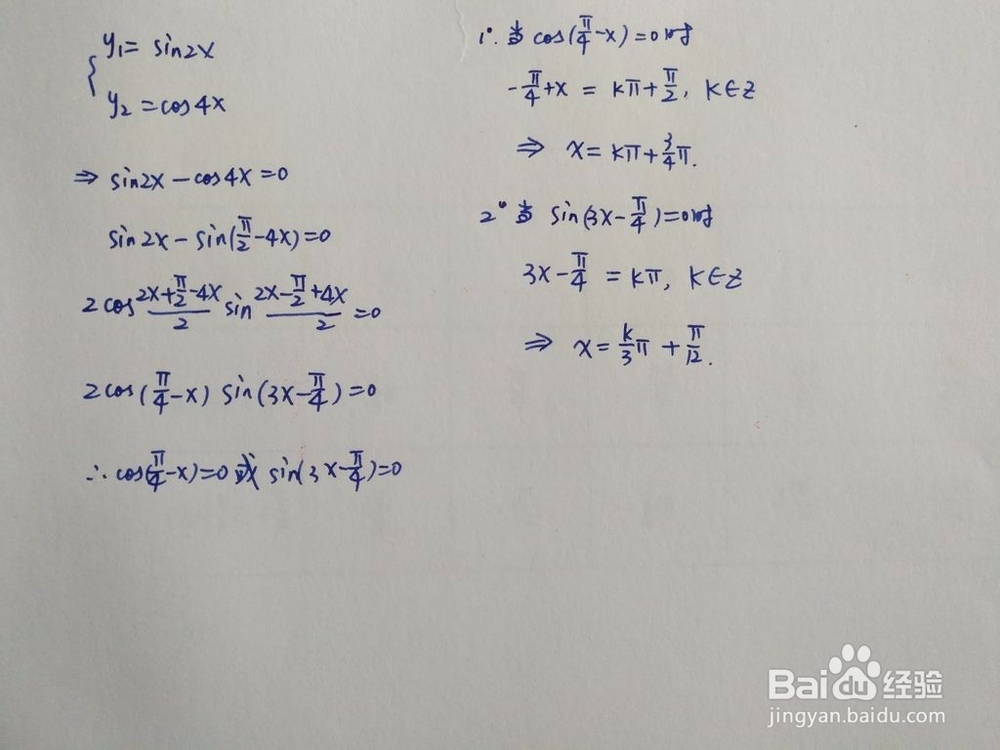 y₁ = sin2x
y₂ = cos4x
⇒ sin2x - cos4x = 0
sin2x - sin(π/2 - 4x) = 0
2cos (2x + π/2 - 4x)/2 sin (2x - π/2 + 4x)/2 = 0
2cos(π/4 - x) sin(3x - π/4) = 0
∴ cos(π/4 - x) = 0 或 sin(3x - π/4) = 0
1°. 当 cos(π/4 - x) = 0时
-π/4 + x = kπ + π/2, k∈Z
⇒ x = kπ + 3/4π.
2° 当 sin(3x - π/4) = 0时
3x - π/4 = kπ, k∈Z
⇒ x = k/3π + π/12.
Baidu经验
jingyan.baidu.com